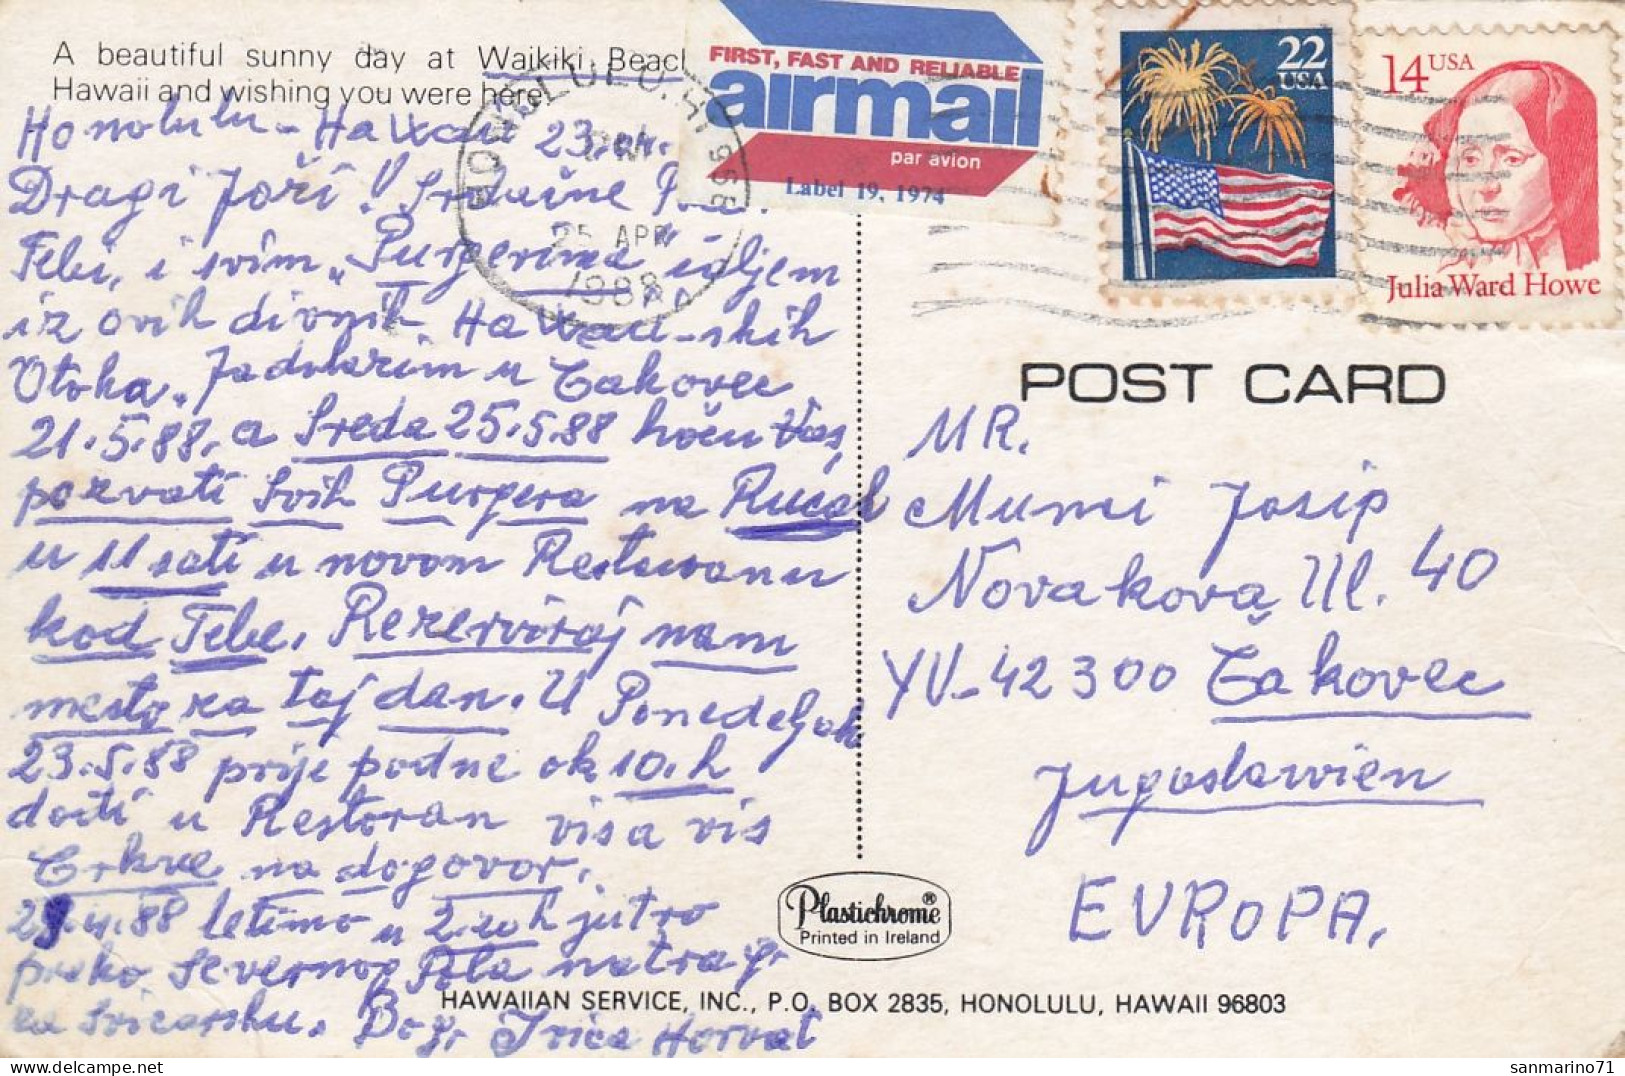 A beautiful sunny day at Waikiki Beach
Hawaii and wishing you were here!
HONOLULU, HI 968
PM
25 APR
1988
FIRST, FAST AND RELIABLE
airmail
par avion
Label 19, 1974
22
USA
14 USA
Julia Ward Howe
POST CARD
Honolulu - Hawaii 23.
Dragi Joži! Srdačne
Tebi, i svim "Purgerima" šaljem
iz ovih divnih Hawaii-skih
Otoka. Ja dolazim u Čakovec
21.5.88. a Sreda 25.5.88 hoću Vas,
pozvati svih Purgera na Rucak
u 11 sati u novom Restauranu
kod Tebe. Rezerviraj nam
mesto za taj dan. U Ponedeljak
23.5.88 prije podne ok 10.h
doći u Restoran visa vis
Crkve na dogovor.
.4.88 letimo u 2.20h jutro
preko Severnog Pola natrag
za Svicarsku. Ivica Horvat
MR.
Mumi Josip
Novakova Ul. 40
YU-42300 Čakovec
Jugoslawien
EVROPA.
Plastichrome®
Printed in Ireland
HAWAIIAN SERVICE, INC., P.O. BOX 2835, HONOLULU, HAWAII 96803
sanmarino71